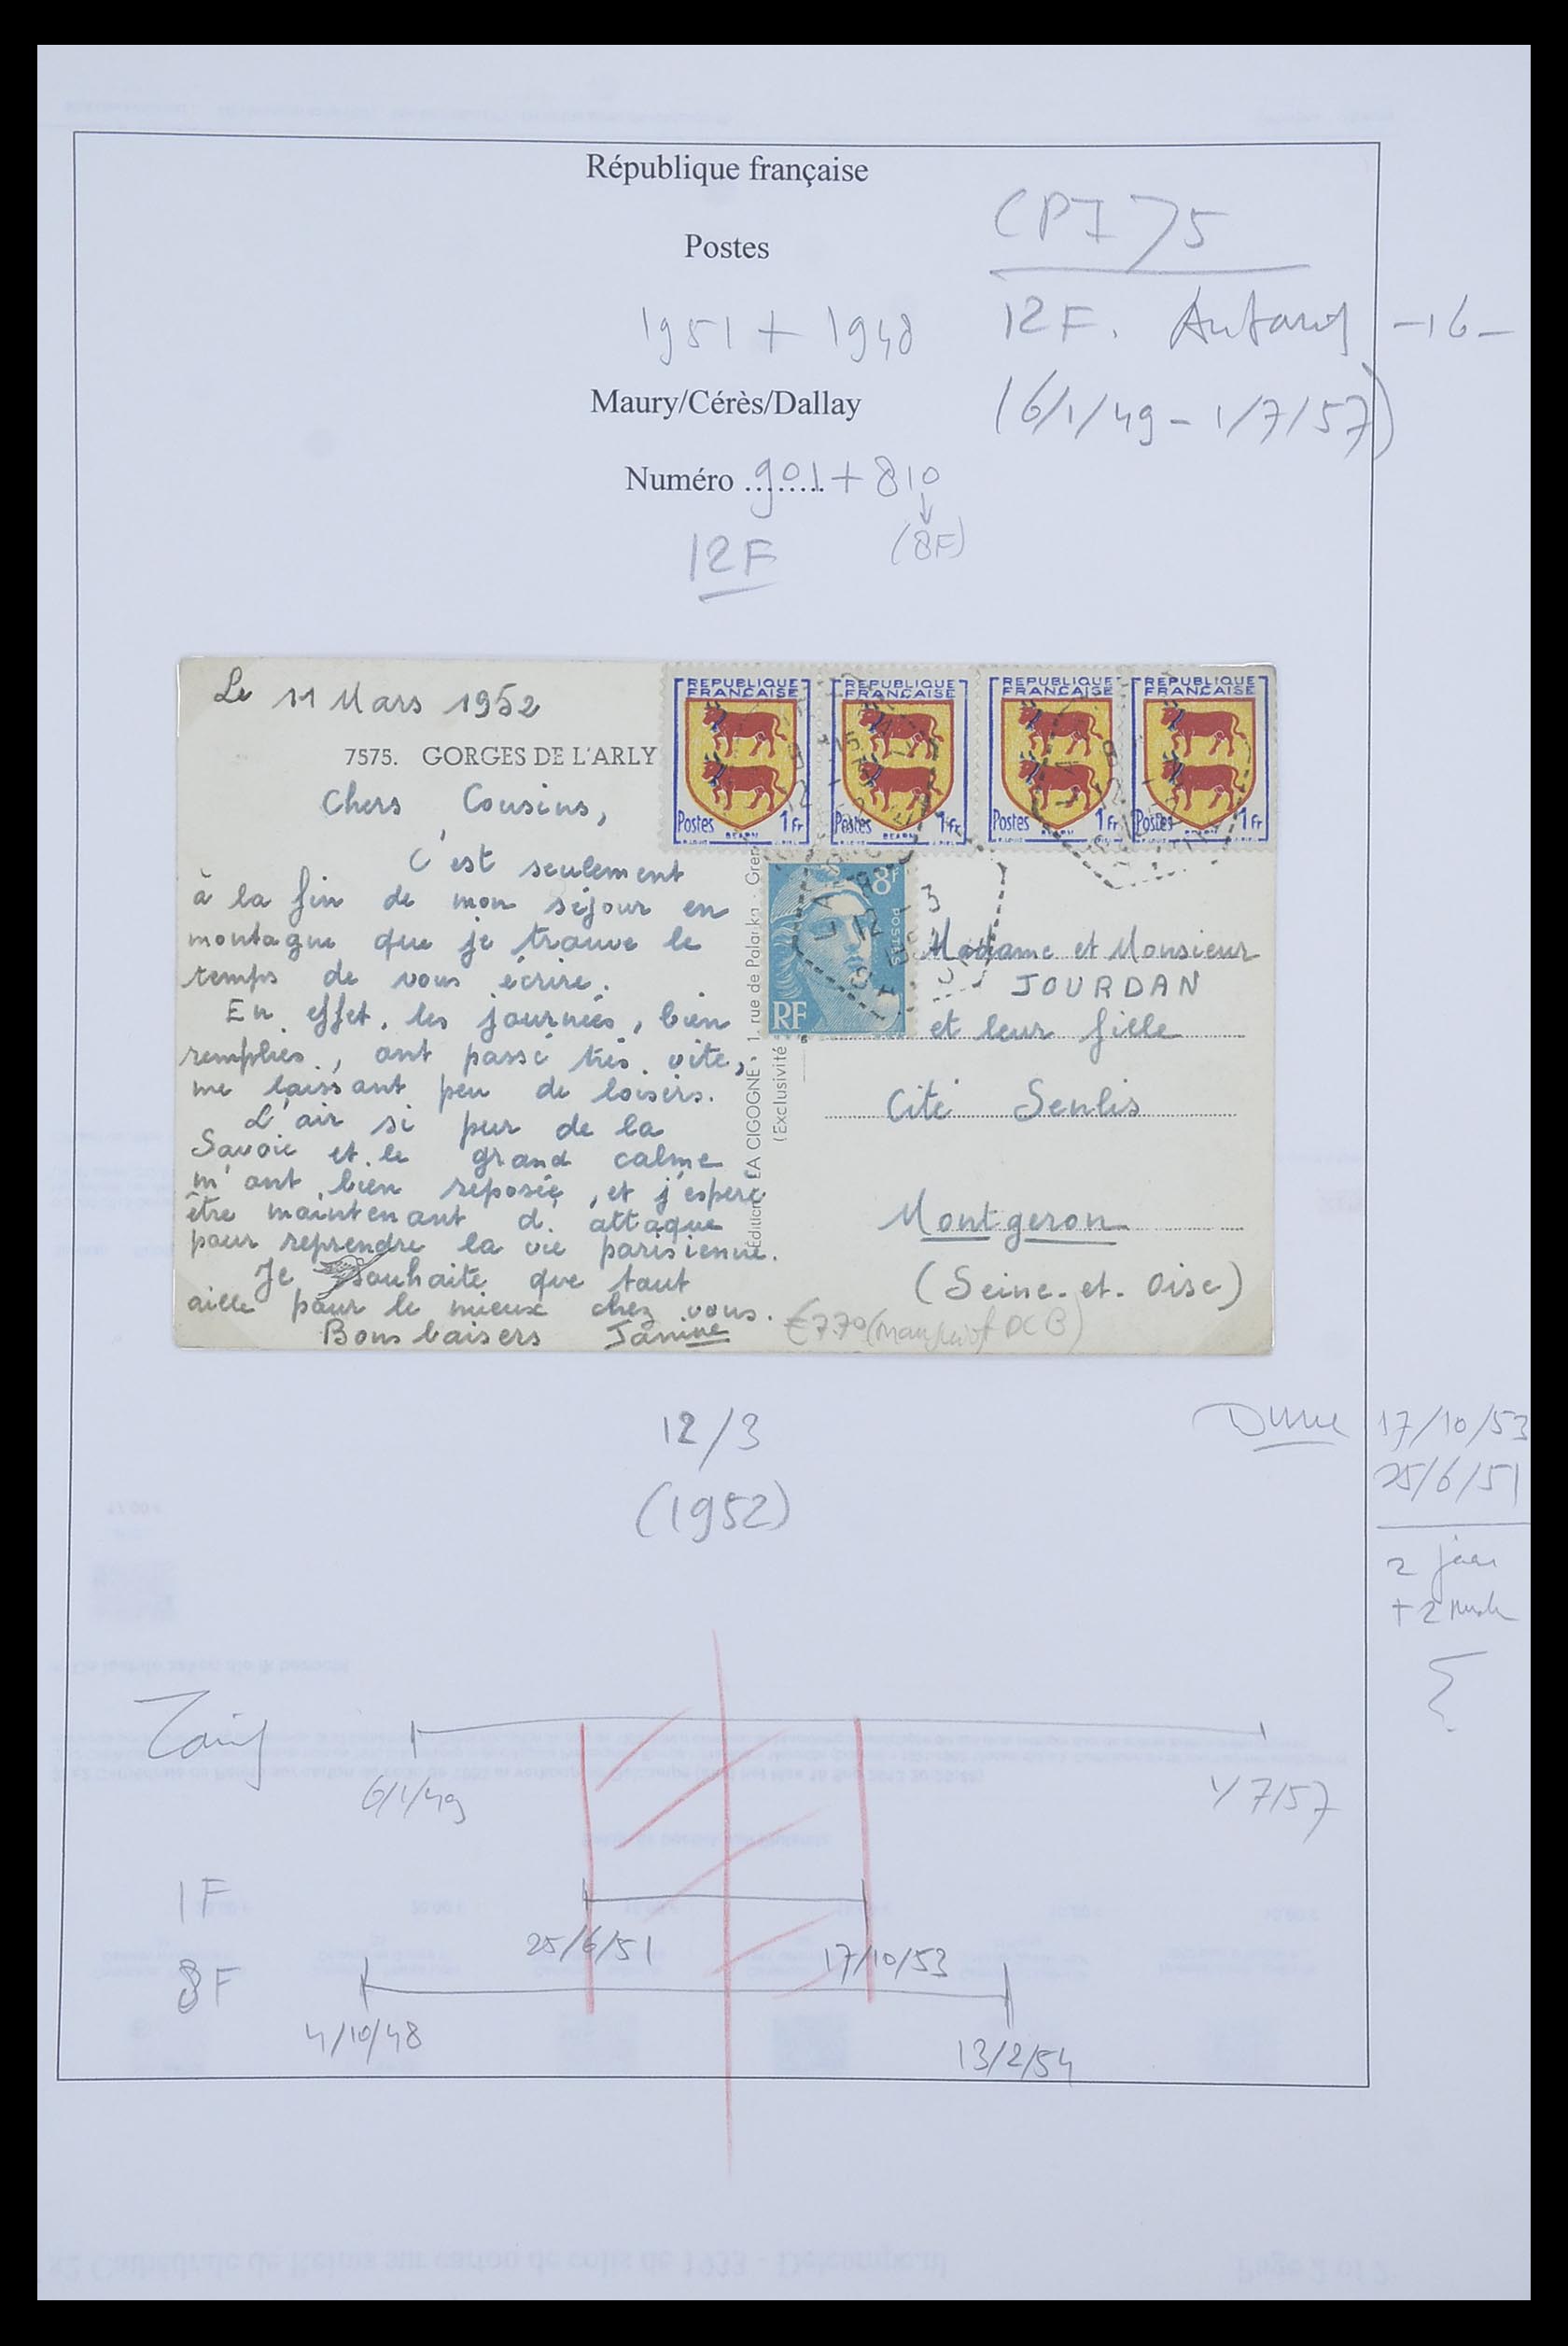 République française
CPI 75
Postes
1951 + 1948
12F. -16-
Maury/Cérès/Dallay
(6/1/49 - 1/7/57)
Numéro ........ 901 + 810
12F
(8F)
Le 11 Mars 1952
7575. GORGES DE L'ARLY
Chers Cousins,
C'est seulement
à la fin de mon séjour en
montagne que je trouve le
temps de vous écrire.
En effet, les journées, bien
remplies, ont passé très vite,
me laissant peu de loisirs.
L'air si pur de la
Savoie et le grand calme
m'ont bien reposée, et j'espère
être maintenant d'attaque
pour reprendre la vie parisienne.
Je souhaite que tout
aille pour le mieux chez vous.
Bons baisers Janine
REPUBLIQUE FRANÇAISE
Postes BEARN 1 Fr
REPUBLIQUE FRANÇAISE
Postes BEARN 1 Fr
REPUBLIQUE FRANÇAISE
Postes 1 Fr
REPUBLIQUE FRANÇAISE
Postes BEARN 1 Fr
8F
POSTES
RF
12 - 3
Édition LA CIGOGNE - 1, rue de Palanka - Gren
(Exclusivité
Madame et Monsieur
JOURDAN
et leur fille
Cité Senlis
Montgeron
(Seine-et-Oise)
€7.70 DCB)
12/3
(1952)
Durée
17/10/53
25/6/51
2 jaar
+2
Tarif
6/1/49
1/7/57
1F
25/6/51
17/10/53
8F
4/10/48
13/2/54
Page 2 of 2